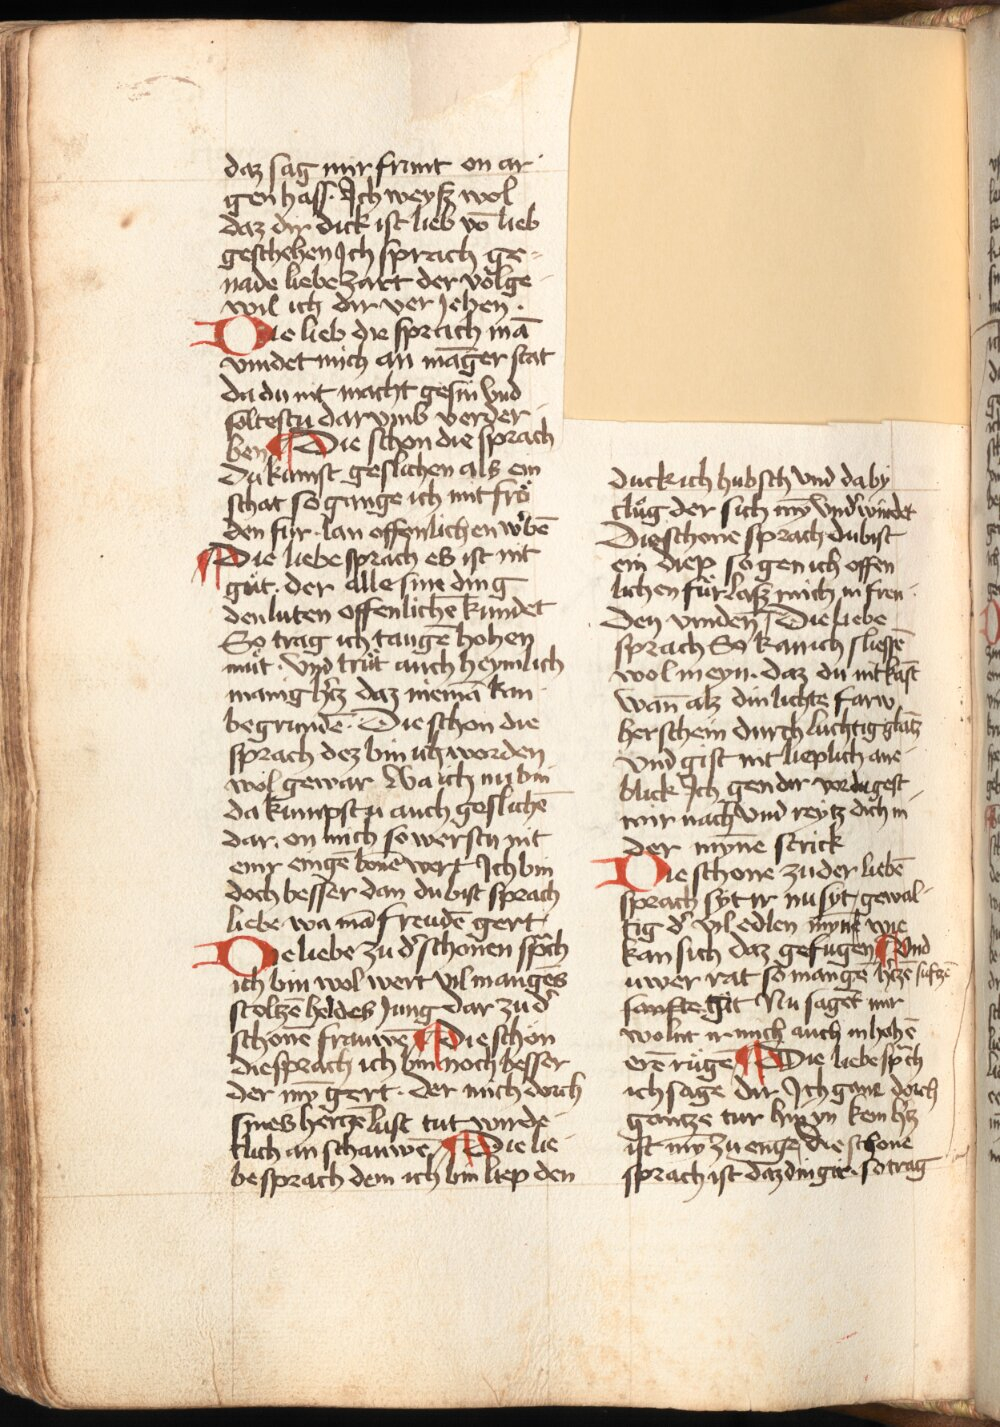 daz sag mir frunt on ar
gen hass. Ich weysz wol
daz dir dick ist lieb vō lieb
geschehen Ich sprach ge-
nade liebe zart der volge
wil ich dir ver Jehen.
Die lieb die sprach mā
vindet mich an māger stat
da du nit macht gesin vnd
soltestu dar vmb verder
ben Die schon die sprach
Du kunst geslichen als ein
schat so gange ich mit frö
den für. lan offenlichen w'bē
Die liebe sprach es ist nit
gůt. der alle sine ding
den luten offenlichē kundet
So trag ich taugē hohen
můt. vnd trůt auch heymlich
manig h'tz daz niemā kan
begrundē. Die schon die
sprach dez bin ich worden
wol gewar Wa ich nu bin
da kumpstu auch geslichē
dar. on mich so werstu nit
einr eingē bonē wert Ich bin
doch besser dan du bist sprach
liebe. wa mā freudē gert
Die liebe zu d' schonen sp̄ch
ich bin wol wert vil mangēs
stoltzē heldes Jung dar zu d'
schonē frauwē Die schon
die sprach ich bin noch besser
der my gert. der mich dorch
sines hertzē lust tut wirde
klich an schauwē Die lie
be sprach dem ich bin liep den
duck ich hubsch vnd da by
clůg der sich my vnd' windet
Die schone sprach du bist
ein diep so gen ich offen
lichen für lasz mich in freu
den vinden Die liebe
sprach So kan ich sliessē
wol in eyn. daz du nit kāst
wan als din lichte farw
her schein durch luchtig glātz
vnd gist nit lieplich ane
blick Ich gen dir vor du gest
mir nach vnd reytz dich in
der mynē strick
Die schone zu der liebē
sprach syt ir nu syt gewal
tig d' vil edlen mynē wie
kan sich daz gefugen Vnd
uwer rat so mangē h'tzē sufzē
sanfte git Nu saget mir
wolnt ir mich auch in hohē
erē rügē Die liebe sp̄ch
ich sage dir Ich gane dorch
gantze tur hin yn kein h'tz
ist my zu enge die schone
sprach ist daz din gir. so trag